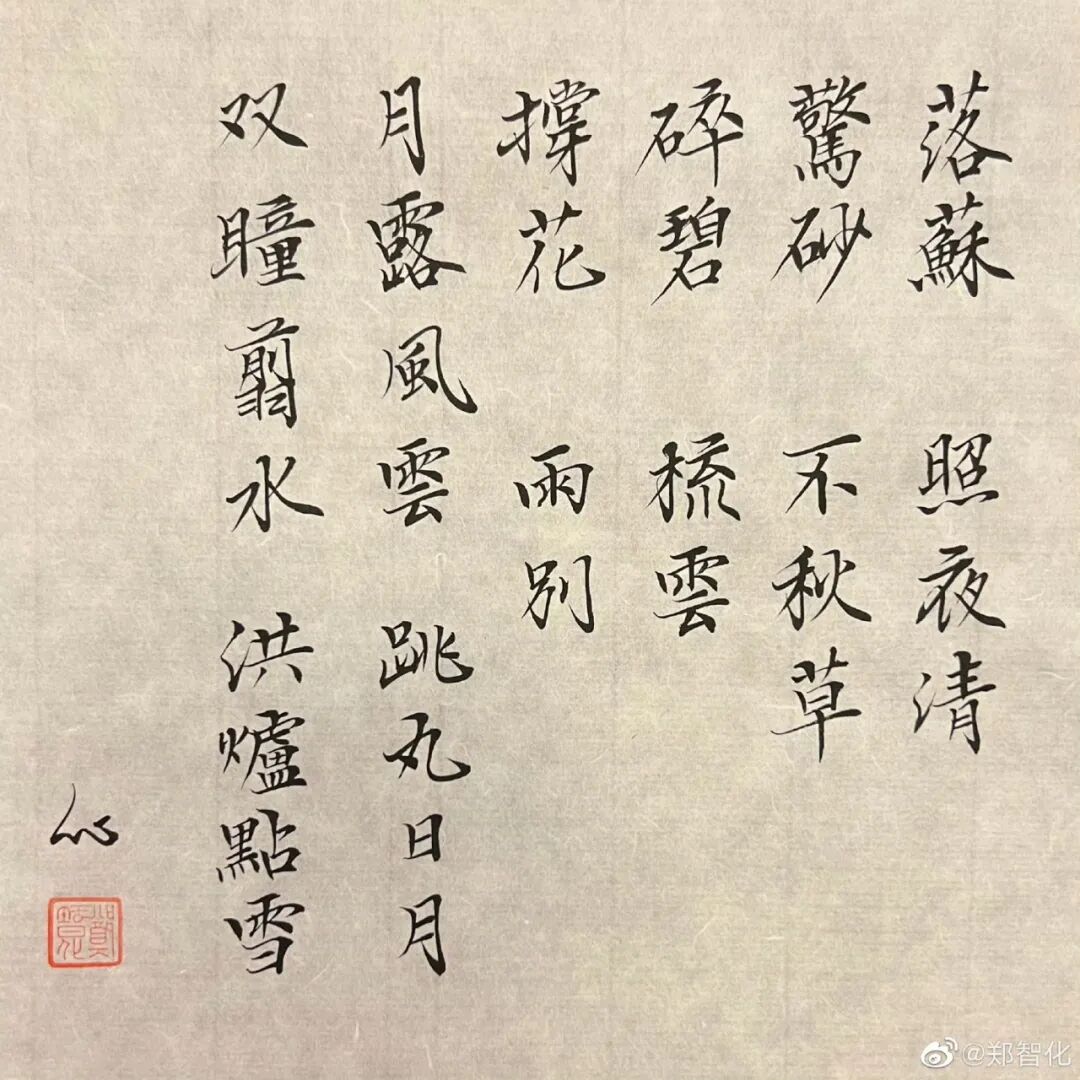 落蘇 照夜清
驚砂 不秋草
碎碧 梳雲
撐花 雨別
月露風雲 跳丸日月
双瞳翦水 洪爐點雪
@郑智化